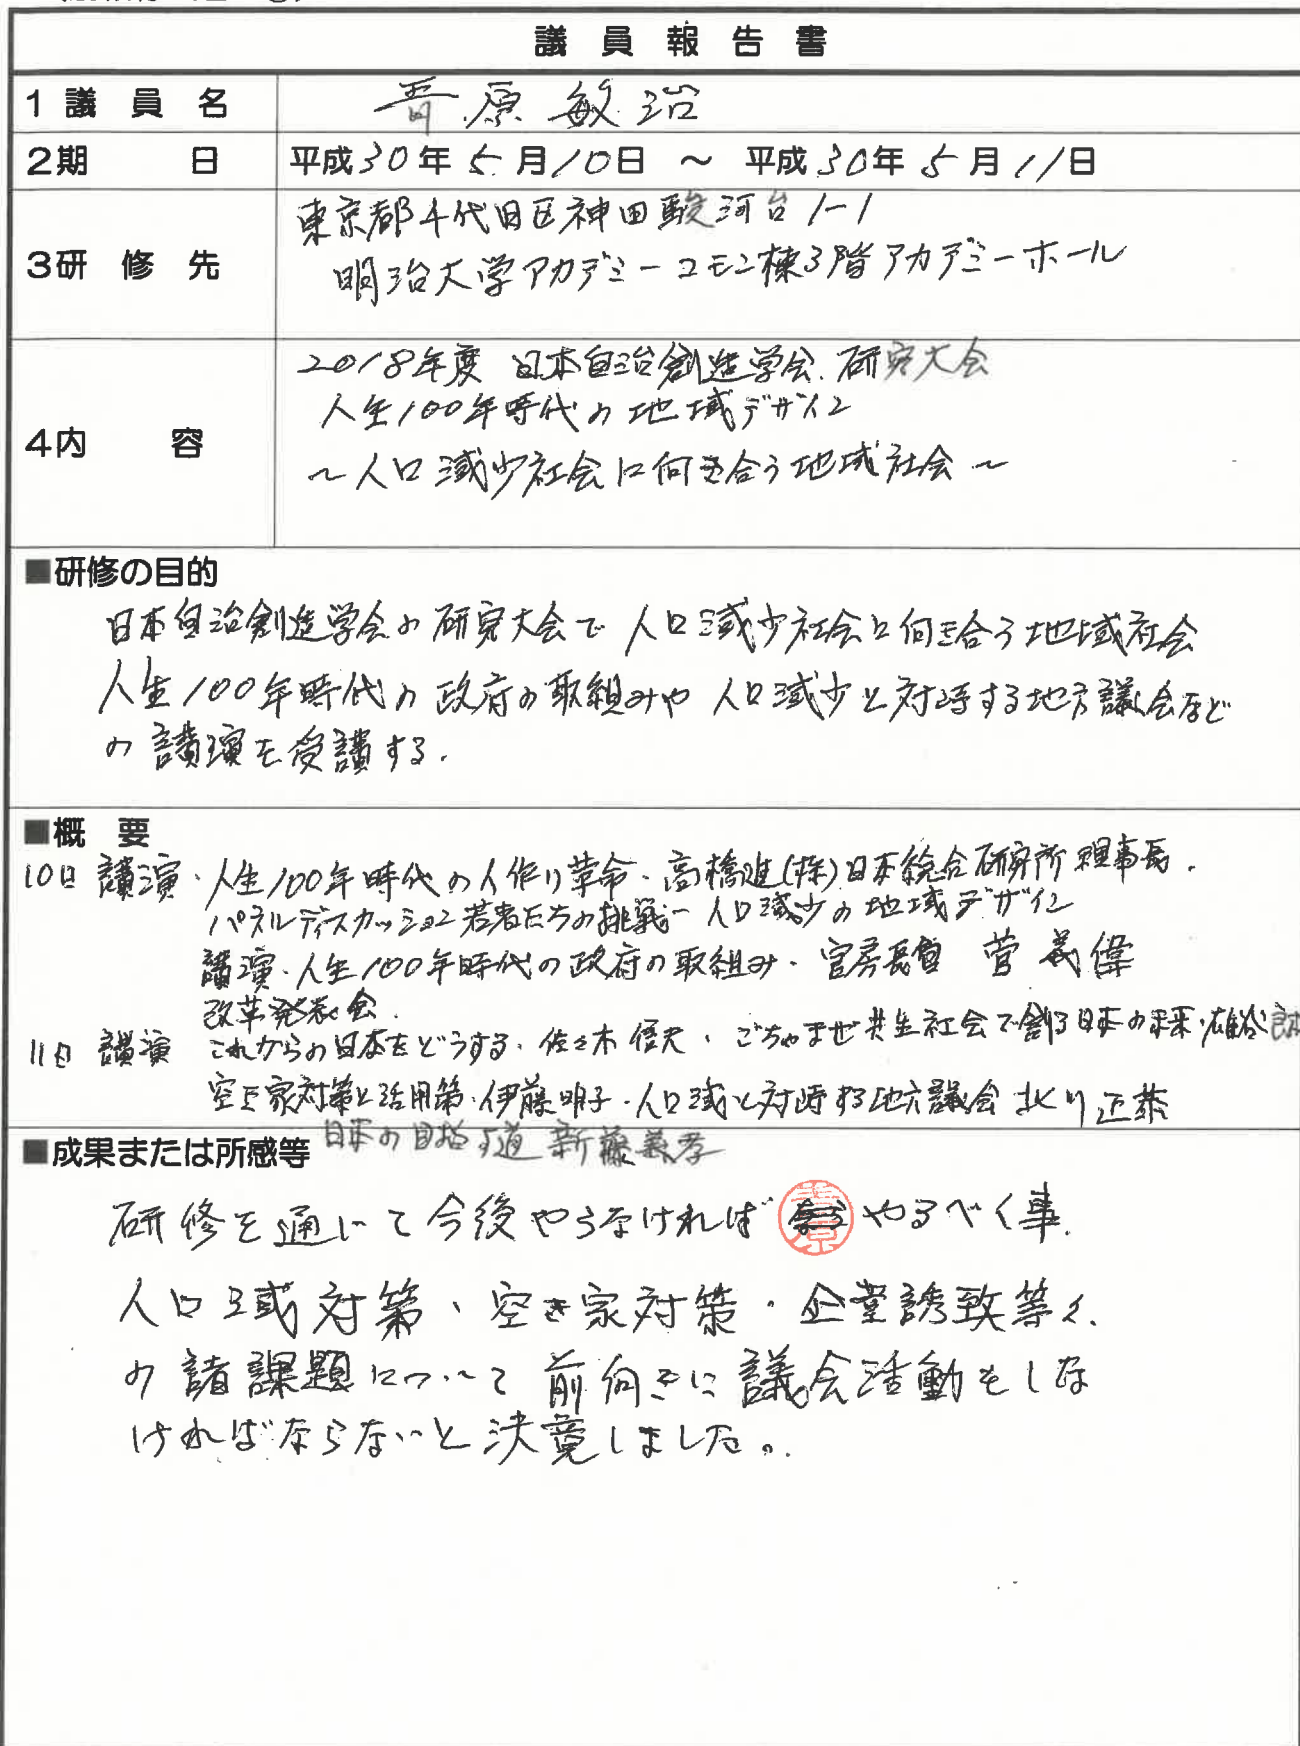 議員報告書
1議員名 青原敏治
2期日 平成30年5月10日 ～ 平成30年5月11日
3研修先 東京都千代田区神田駿河台1-1
明治大学アカデミーコモン棟3階アカデミーホール
4内容 2018年度 日本自治創造学会 研究大会
人生100年時代の地域デザイン
～人口減少社会に向き合う地域社会～
■研修の目的
日本自治創造学会の研究大会で人口減少社会に向き合う地域社会
人生100年時代の政府の取組みや人口減少と対峙する地方議会など
の講演を受講する.
■概要
10日 講演・人生100年時代の人作り革命・高橋進(株)日本総合研究所理事長.
パネルディスカッション若者たちの挑戦－人口減少の地域デザイン
講演・人生100年時代の政府の取組み・官房長官 菅義偉
改革発表会.
11日 講演 これからの日本をどうする・佐々木信夫・ごちゃまぜ共生社会で創る日本の未来・雄谷良成
空き家対策と活用策・伊藤明子・人口減と対峙する地方議会 北川正恭
日本の目指す道 新藤義孝
■成果または所感等
研修を通いて今後やらなければ やるべく事.
人口減対策、空き家対策・企業誘致等々.
の諸課題について前向きに議会活動をしな
ければならないと決意しました。